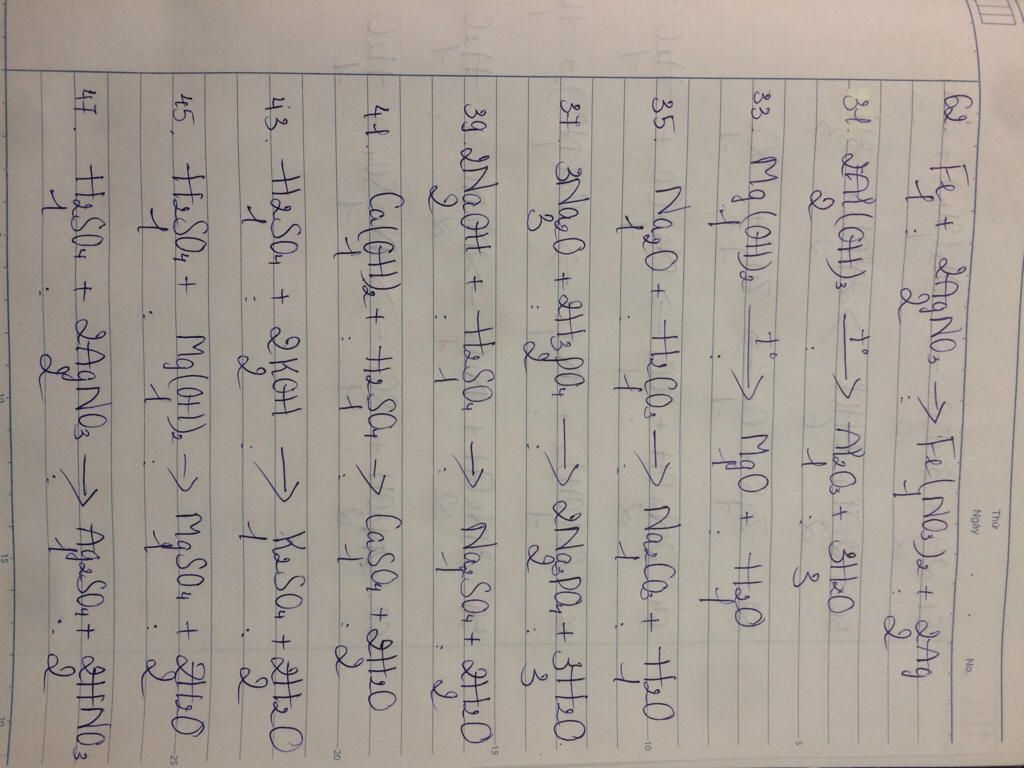 Thứ
Ngày . . No.
62. Fe + 2AgNO3 → Fe(NO3)2 + 2Ag
1 : 2 : 1 : 2
31. 2Al(OH)3 –t°→ Al2O3 + 3H2O
2 : 1 : 3
33. Mg(OH)2 –t°→ MgO + H2O
1 : 1 : 1
35. Na2O + H2CO3 → Na2CO3 + H2O
1 : 1 : 1 : 1
37. 3Na2O + 2H3PO4 → 2Na3PO4 + 3H2O
3 : 2 : 2 : 3
39. 2NaOH + H2SO4 → Na2SO4 + 2H2O
2 : 1 : 1 : 2
41. Ca(OH)2 + H2SO4 → CaSO4 + 2H2O
1 : 1 : 1 : 2
43. H2SO4 + 2KOH → K2SO4 + 2H2O
1 : 2 : 1 : 2
45. H2SO4 + Mg(OH)2 → MgSO4 + 2H2O
1 : 1 : 1 : 2
47. H2SO4 + 2AgNO3 → Ag2SO4 + 2HNO3
1 : 2 : 1 : 2
5
10
15
20
25
10
15
20